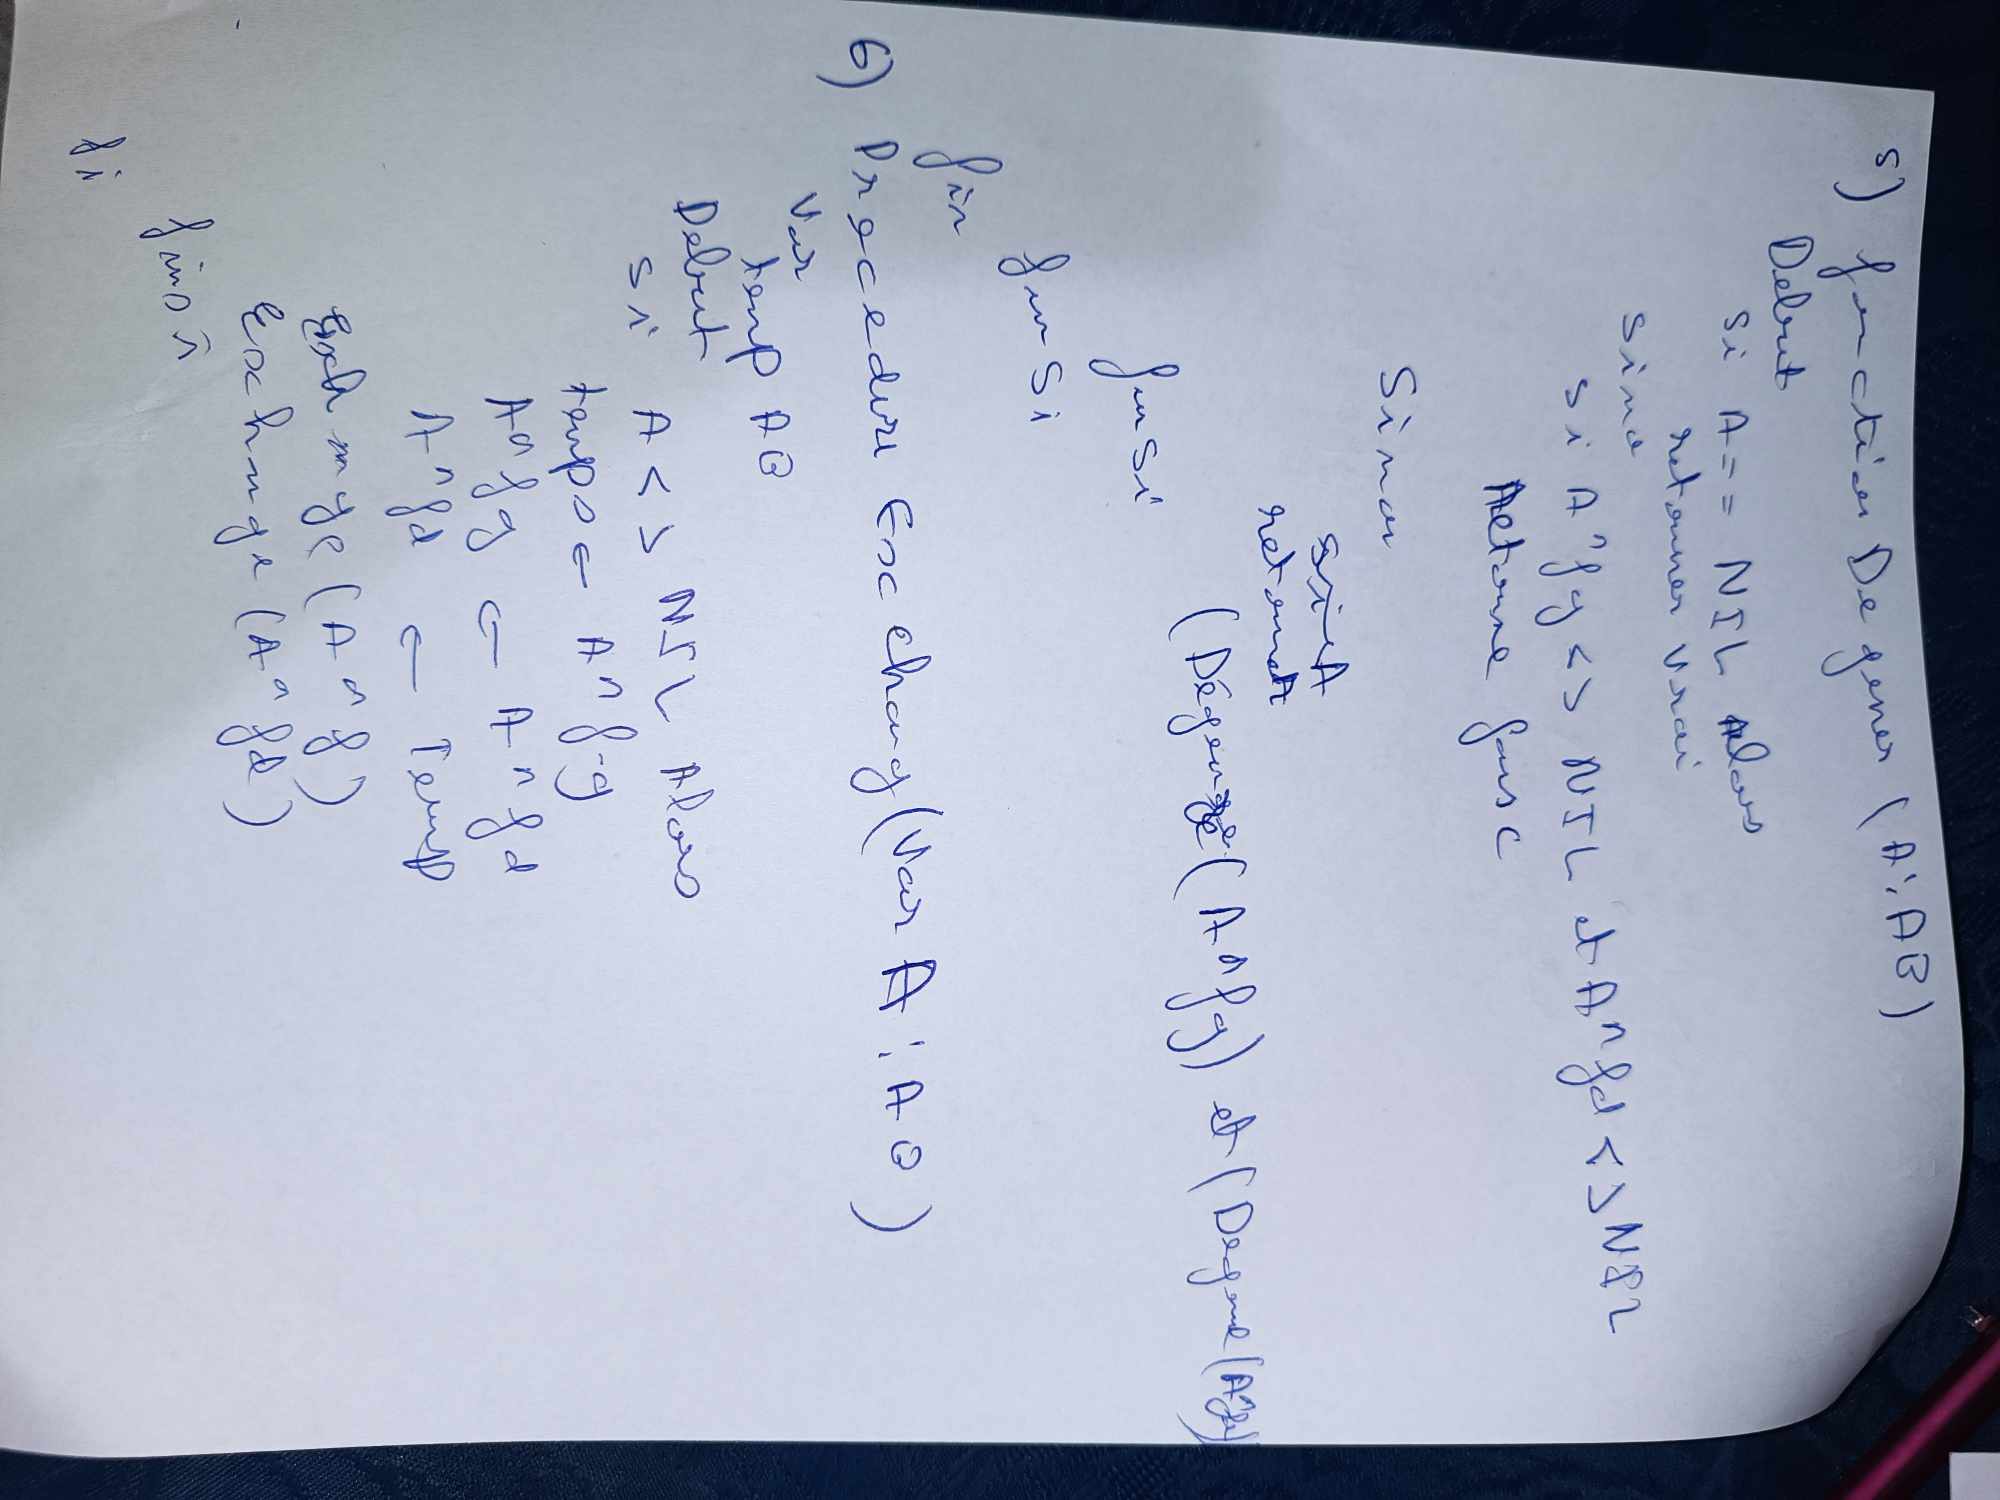 5) fonction Degener (A : AB)
Debut
Si A == NIL Alors
retourner vrai
Sino
Si A^fg <> NIL et A^fd <> NIL
Retourne faux
Sinon
si A
retourner
(Dégénéré (A^fg) et (Degene (A^fd)
finsi
fin Si
fin
6) Procedure Exchang (Var A : AB)
Var
temp AB
Debut
Si A <> NIL Alors
temps ← A^f-g
A^fg ← A^fd
A^fd ← Temp
Exchange (A^f)
Exchange (A^fd)
finsi
fi